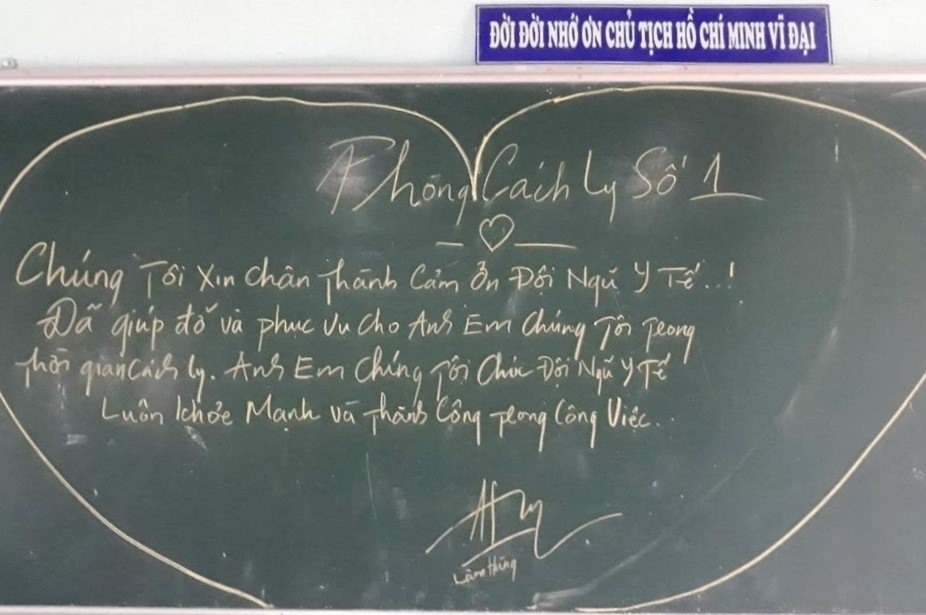 ĐỜI ĐỜI NHỚ ƠN CHỦ TỊCH HỒ CHÍ MINH VĨ ĐẠI
Phòng Cách Ly Số 1
Chúng Tôi Xin Chân Thành Cảm Ơn Đội Ngũ Y Tế...!
Đã giúp đỡ và phục vụ cho Anh Em Chúng Tôi Trong
Thời gian cách ly. Anh Em Chúng Tôi Chúc Đội Ngũ Y Tế
Luôn khỏe Mạnh và Thành Công Trong Công Việc..